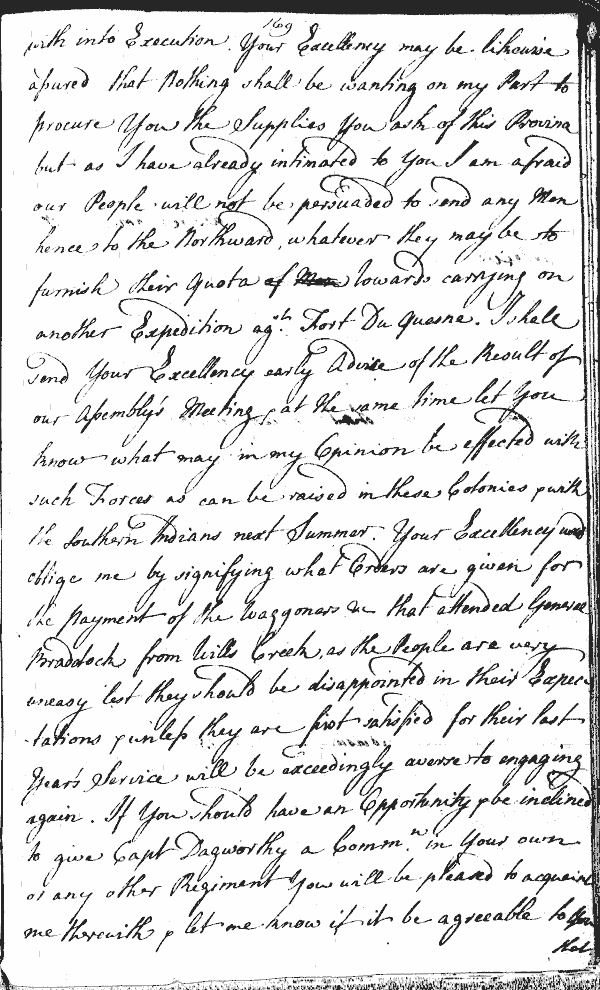 169
with into Execution. Your Excellency may be likewise
assured that Nothing shall be wanting on my Part to
procure You the Supplies You ask of this Province
but as I have already intimated to You I am afraid
our People will not be persuaded to send any Men
hence to the Northward, whatever they may be to
furnish their Quota of Men towards carrying on
another Expedition ag.st Fort Du Quesne. I shall
send Your Excellency early Advise of the Result of
our Assembly's Meeting, at the same time let You
know what may in my Opinion be effected with
such Forces as can be raised in these Colonies & with
the Southern Indians next Summer. Your Excellency will
oblige me by signifying what Orders are given for
the Payment of the Waggoners &c that attended General
Braddock from Wills Creek, as the People are very
uneasy lest they should be disappointed in their Expec
-tations & unless they are first satisfied for their last
Year's Service will be exceedingly averse to engaging
again. If You should have an Opportunity & be inclined
to give Capt Dagworthy a Comm.n in Your own
or any other Regiment You will be pleased to acquaint
me therewith & let me know if it be agreeable to You
that